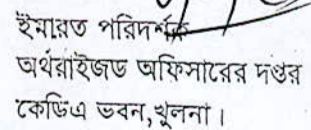 ইমারত পরিদর্শক
অথরাইজড অফিসারের দপ্তর
কেডিএ ভবন,খুলনা।